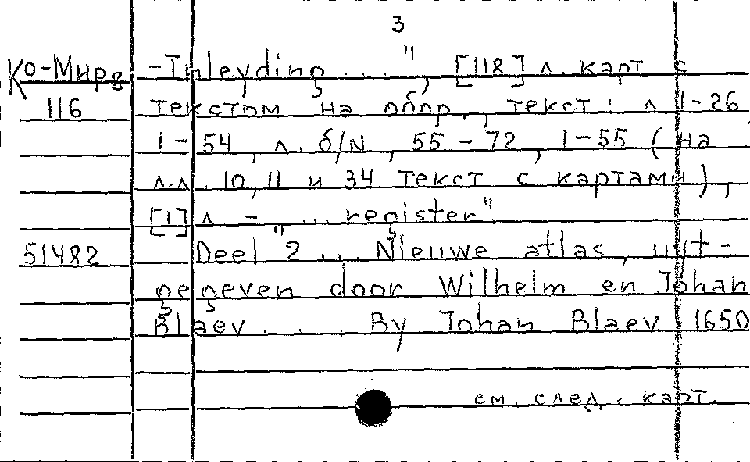 3
Ко-Мира
116
51482
-Inleyding ... ", [118] л. карт с
текстом на обор., текст: л 1-26,
1-54, л. б/N, 55-72, 1-55 (на
л.л. 10, 11 и 34 текст с картами),
[1] л - "... register"
Deel 2 ... Nieuwe atlas, uut-
gegeven door Wilhelm en Johan
Blaev .... By Johan Blaev 1650
см. след. карт.